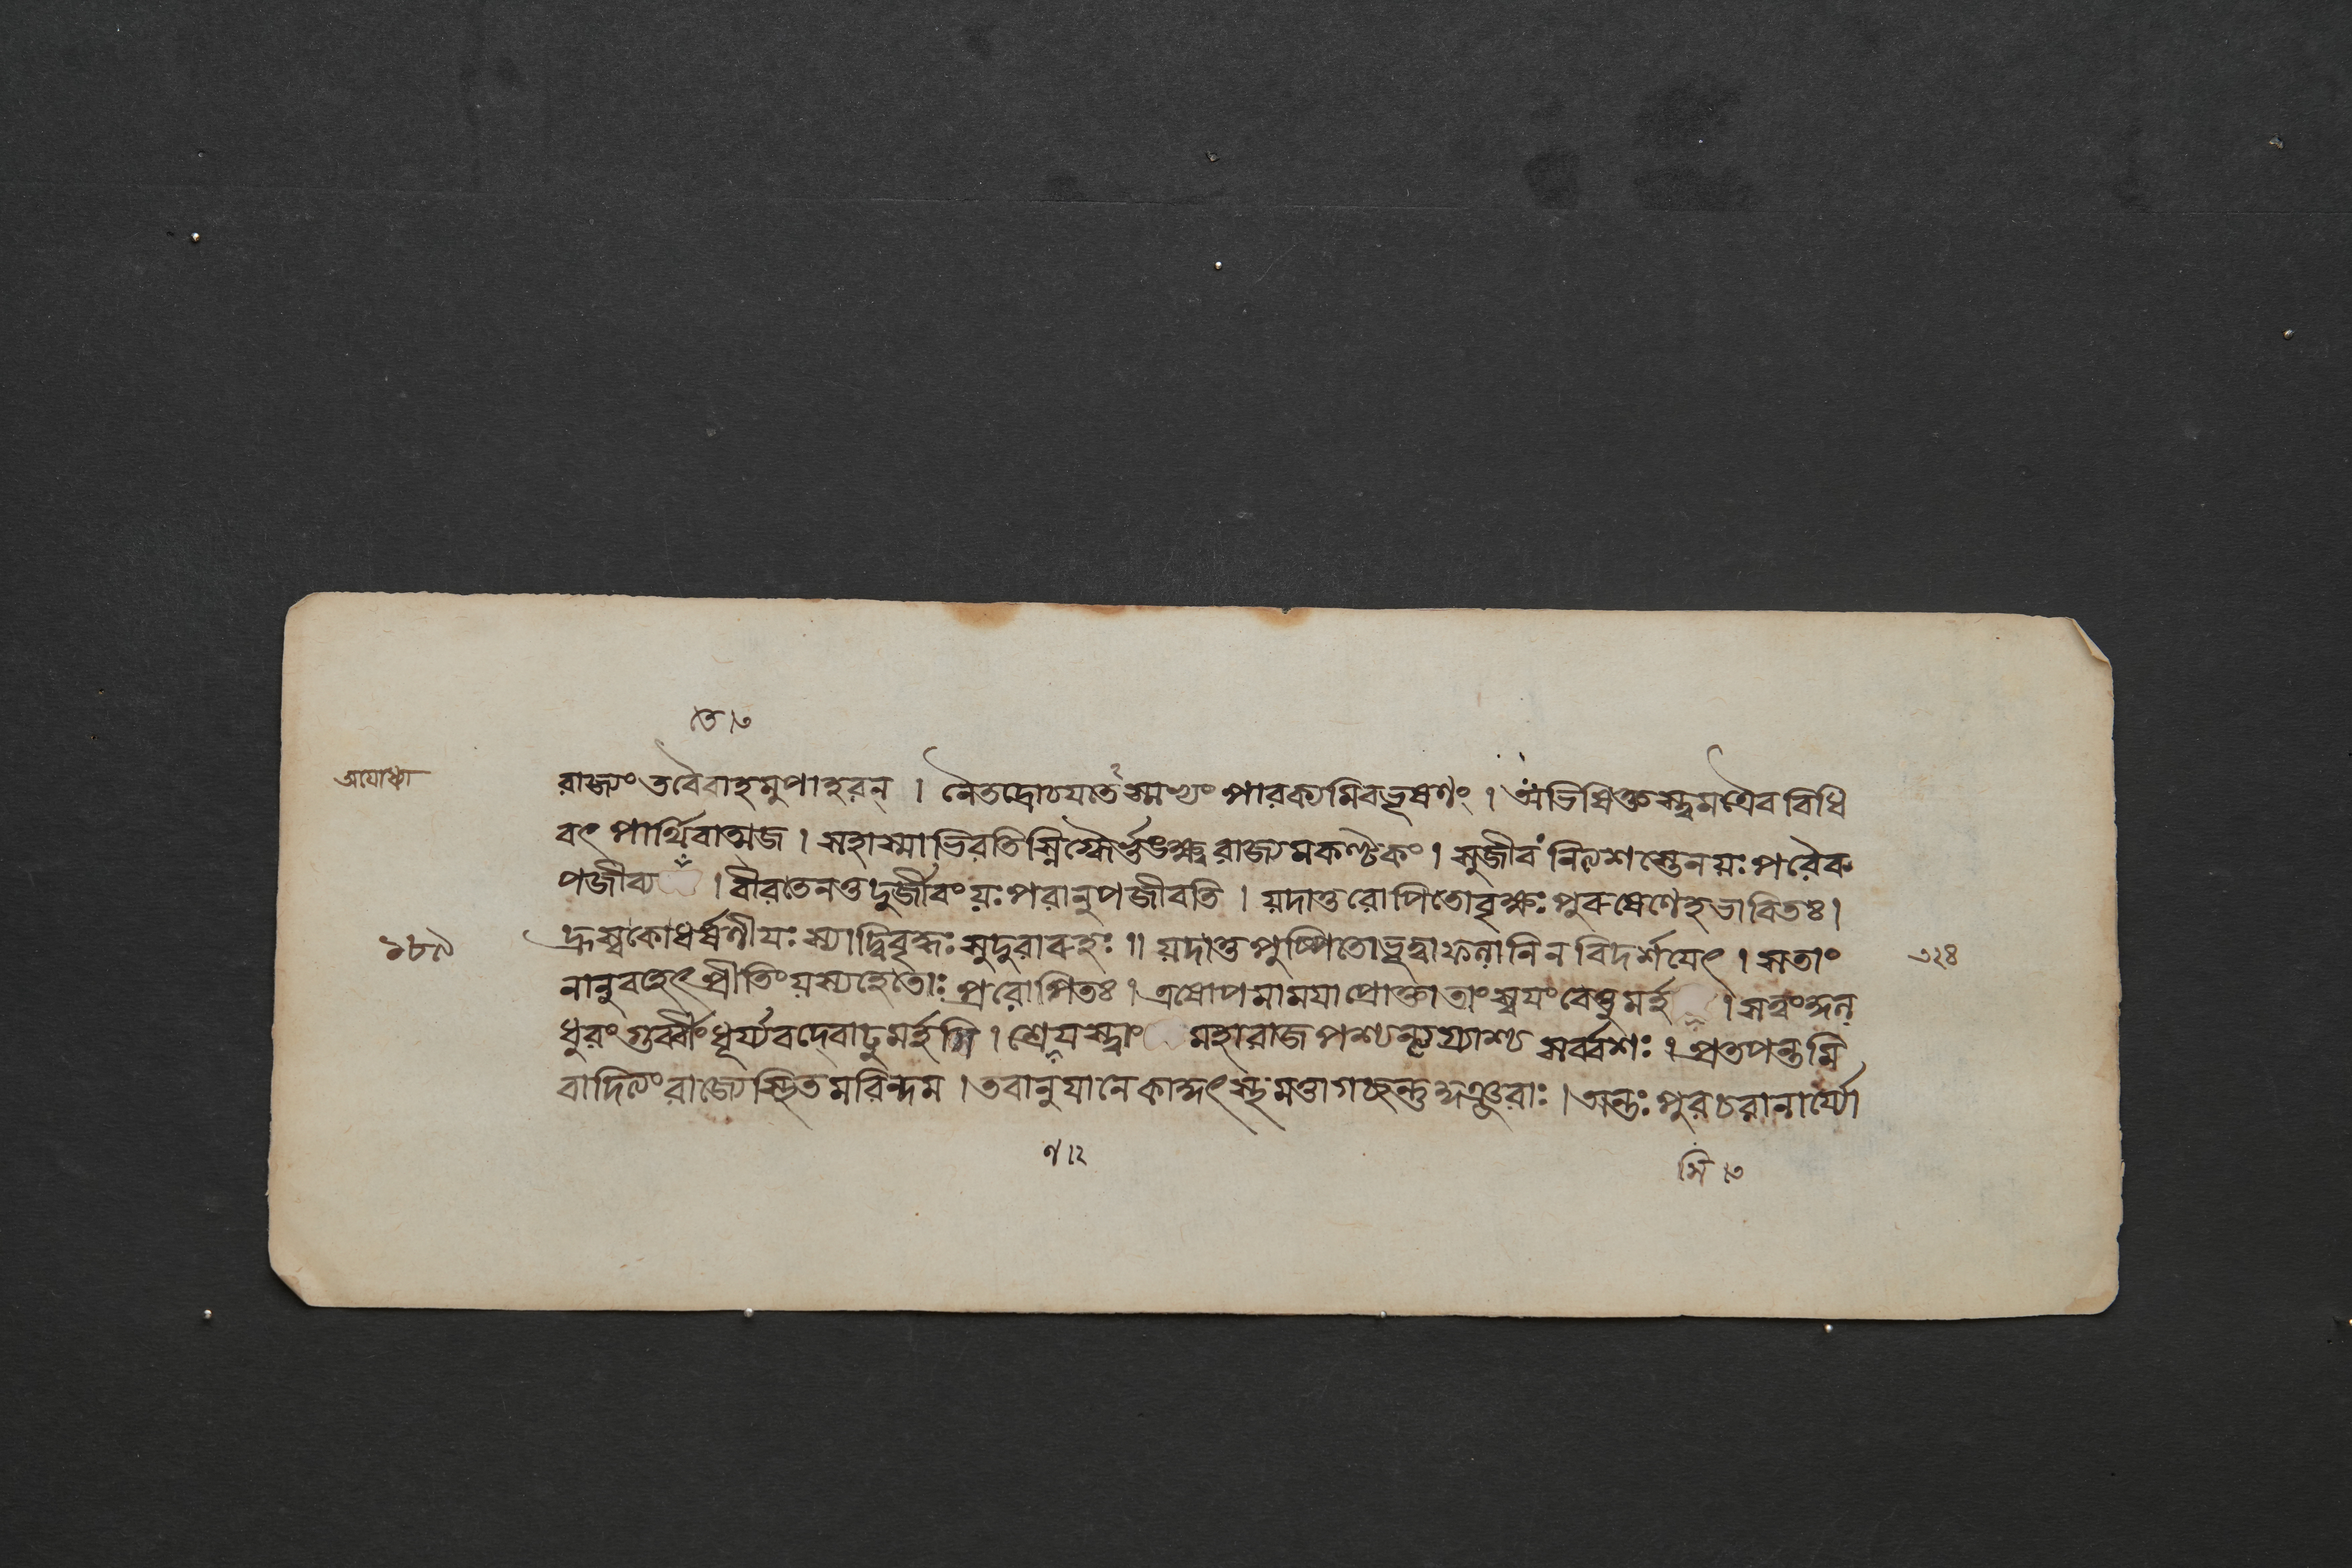 তে।৩
অযোধ্যা
রাজ্যং তবৈবাহমুপাহরন্ । নৈতদ্রোচযতে পারক্যমিবভূষণং । অভিষিক্তস্ত্বমত্রৈব বিধি
বৎ পার্থিবাত্মজ । সহাস্মাভিরতিস্নিগ্ধৈর্ভুঙ্ক্ষ্ব রাজ্যমকণ্টকং । সুজীবং নিত্যশস্তেন য়ঃ পরৈরু
পজীব্য । বীরতেন তু দুর্জীবং য়ঃ পরানুপজীবতি । য়দা তু রোপিতো বৃক্ষঃ পুরুষেণেহ ভাবিতঃ ।
১৮৯
হ্রস্বকোধর্ষণীযঃ স্যাদ্বিবৃদ্ধঃ সুদুরারুহঃ ॥ য়দা তু পুষ্পিতো ভূত্বা ফলানি ন বিদর্শযেৎ । সতাং
৩২৪
নানুবহেৎ প্রীতিং য়স্য হেতোঃ প্ররোপিতঃ । এষোপমা মযা প্রোক্তা তাং স্বযং বেত্তুমর্হ । সত্বং
ধুরং গুর্ব্বীং ধূর্য্যবদেবাঢুমর্হসি । শ্রেযস্ত্বাং মহারাজ পশ্যন্তু সর্ব্বশঃ । প্রতপন্তমি
বাদিত্যং রাজ্যে স্থিতমরিন্দম । তবানুযানে গচ্ছন্তু কুঞ্জরাঃ । অন্তঃপুরচরা নার্য্যো
ণ।২
সি।৩